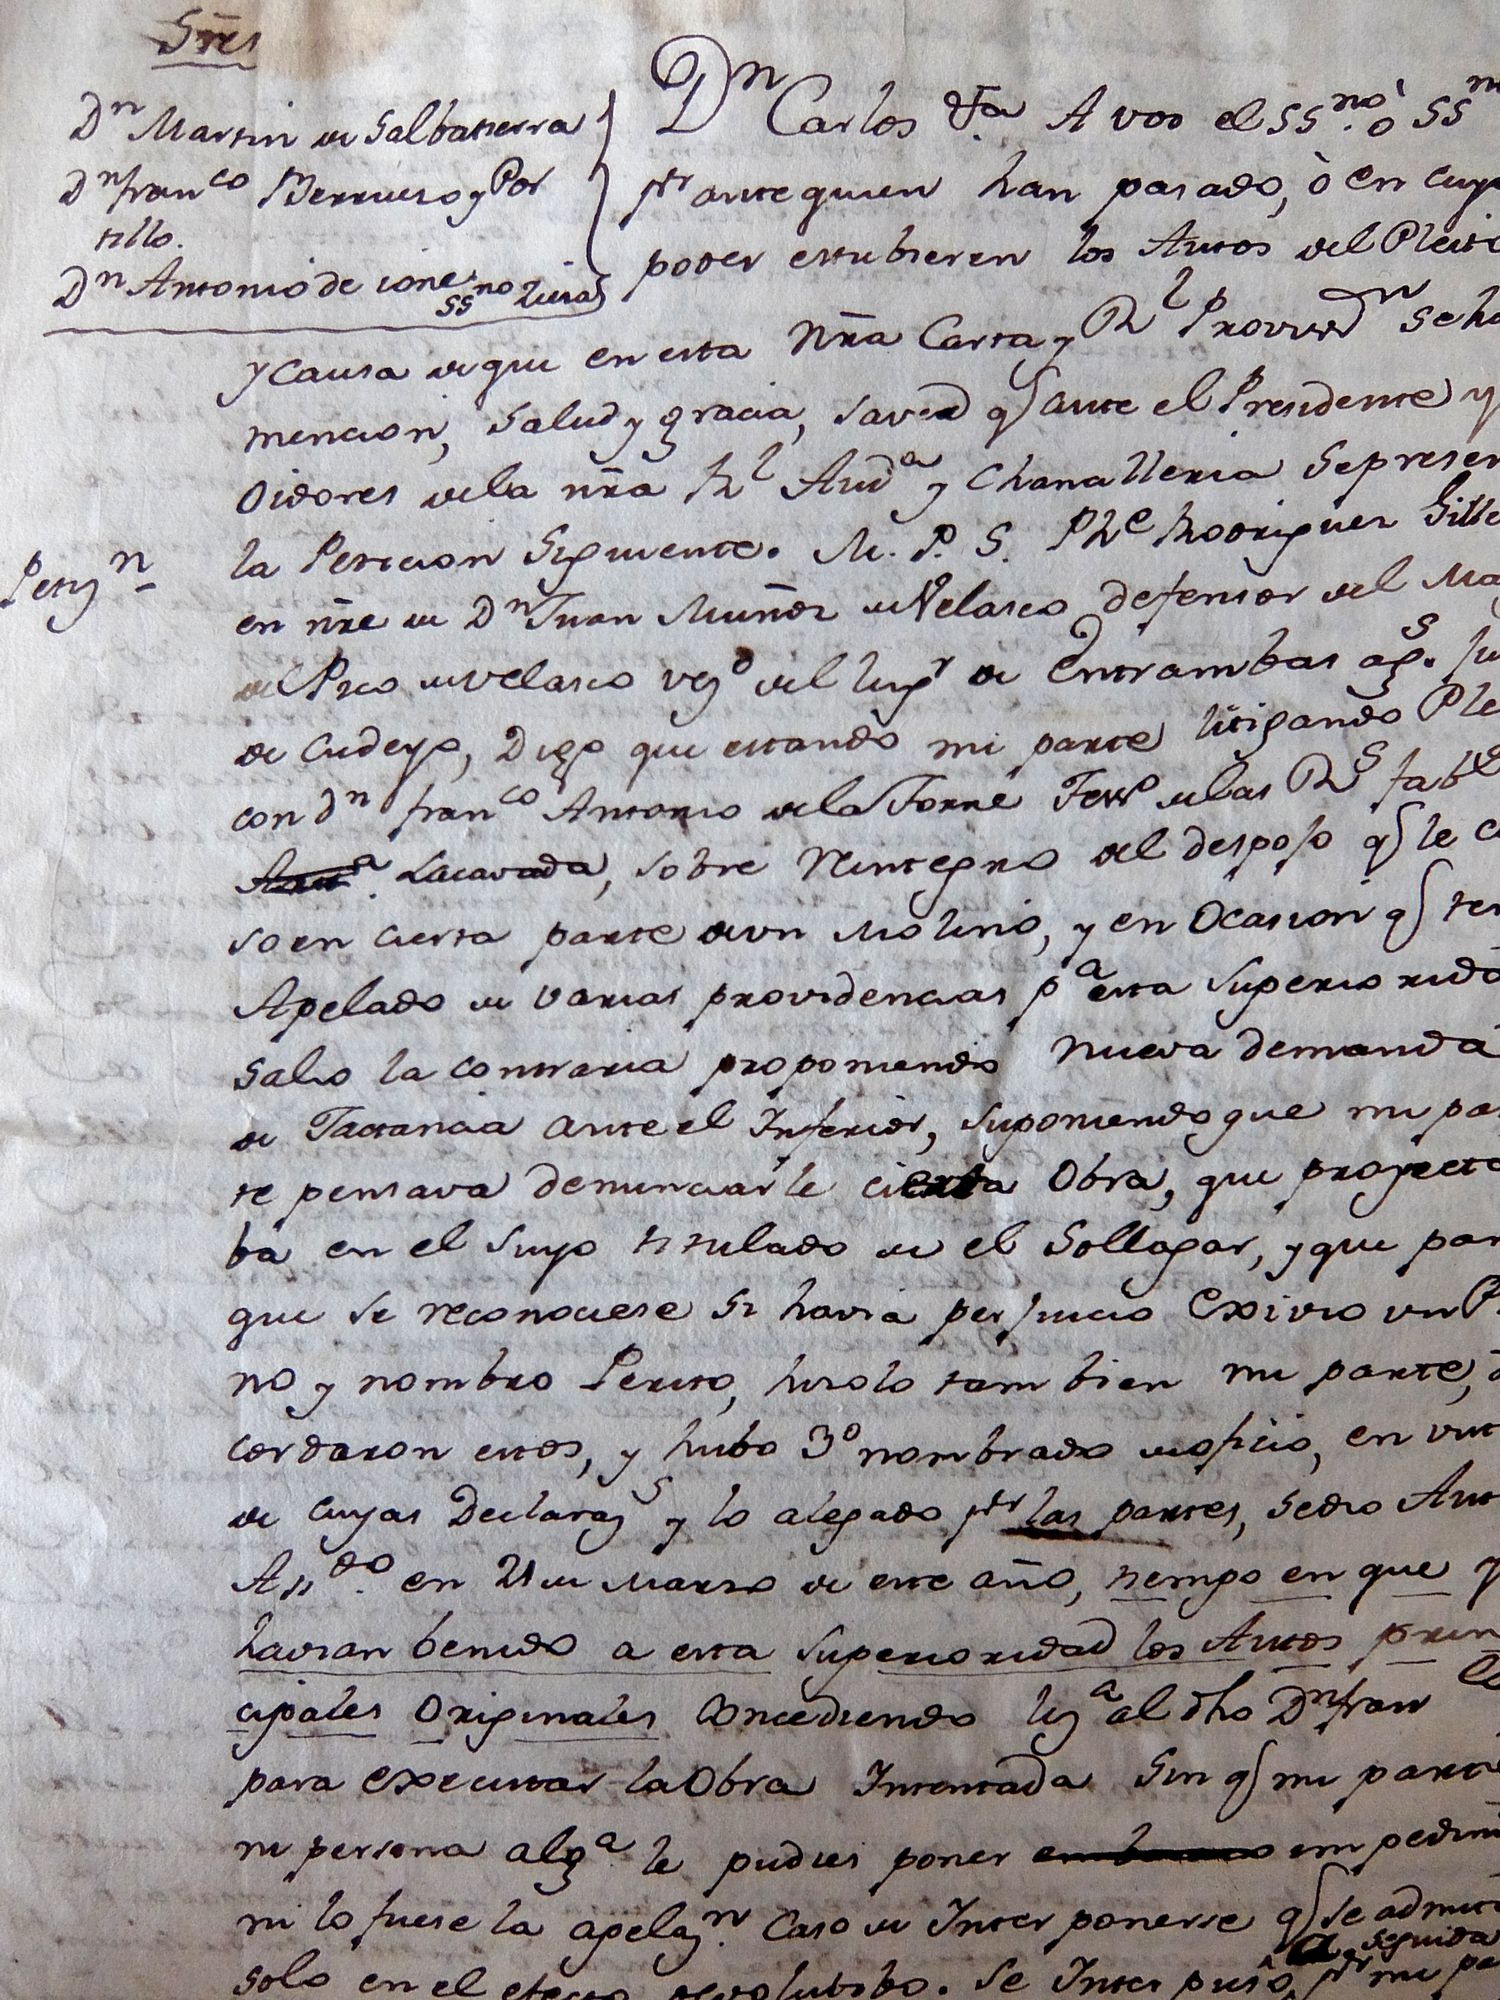 Sres
Dn Martin de Salbatierra
Dn franco Berrueso y Por
tillo.
Dn Antonio de
ssno
Dn Carlos &a A vos el ssno ò ss
pr ante quien han pasado, ò en cuyo
poder estubieren los Autos del Pleito
y causa de que en esta nra Carta y Rl Provissn se ha
mencion, salud y gracia, saved q ante el Presidente y
oidores de la nra Rl Auda y Chanzilleria se presen
Petizn
la Peticion siguiente. M. P. S. Phe Rodriguez Gille
en nre de Dn Juan Muñoz de Velasco defensor del Ma
de Velasco vezo del lugr de Entrambas ags. Ju
de Cudeyo, Digo que estando mi parte litigando Ple
con Dn franco Antonio de la Torre de las Rs fabs
Lacavada, sobre Reintegro del despojo q le cau
so en cierta parte de un Molino, y en ocasion q ten
Apelado de varias providencias pa esta superioridd
salio la contraria proponiendo nueva demanda
de Jactancia ante el Inferior, suponiendo que mi par
te pensava denunciarle cierta obra, que proyecta
ba en el suyo titulado de el Sollagar, y que par
que se reconociese si havia perjuicio exivio un Pla
no y nombro Perito, hizolo tambien mi parte, d
cordaron estos, y hubo 3o nombrado de oficio, en vist
de cuyas Declarazs y lo alegado pr las partes, se dio Aut
Assdo. en 21 de Marzo de este año, tiempo en que y
havian benido a esta superioridad los Autos prin
cipales originales concediendo liza al dho Dn franco
para executar la obra Intentada sin q mi parte
ni persona alga le pudies poner impedim
ni lo fuese la apelazn. caso de Interponerse q se admit
seguida
solo en el efecto devolutibo. se Interpuso, pr mi pa